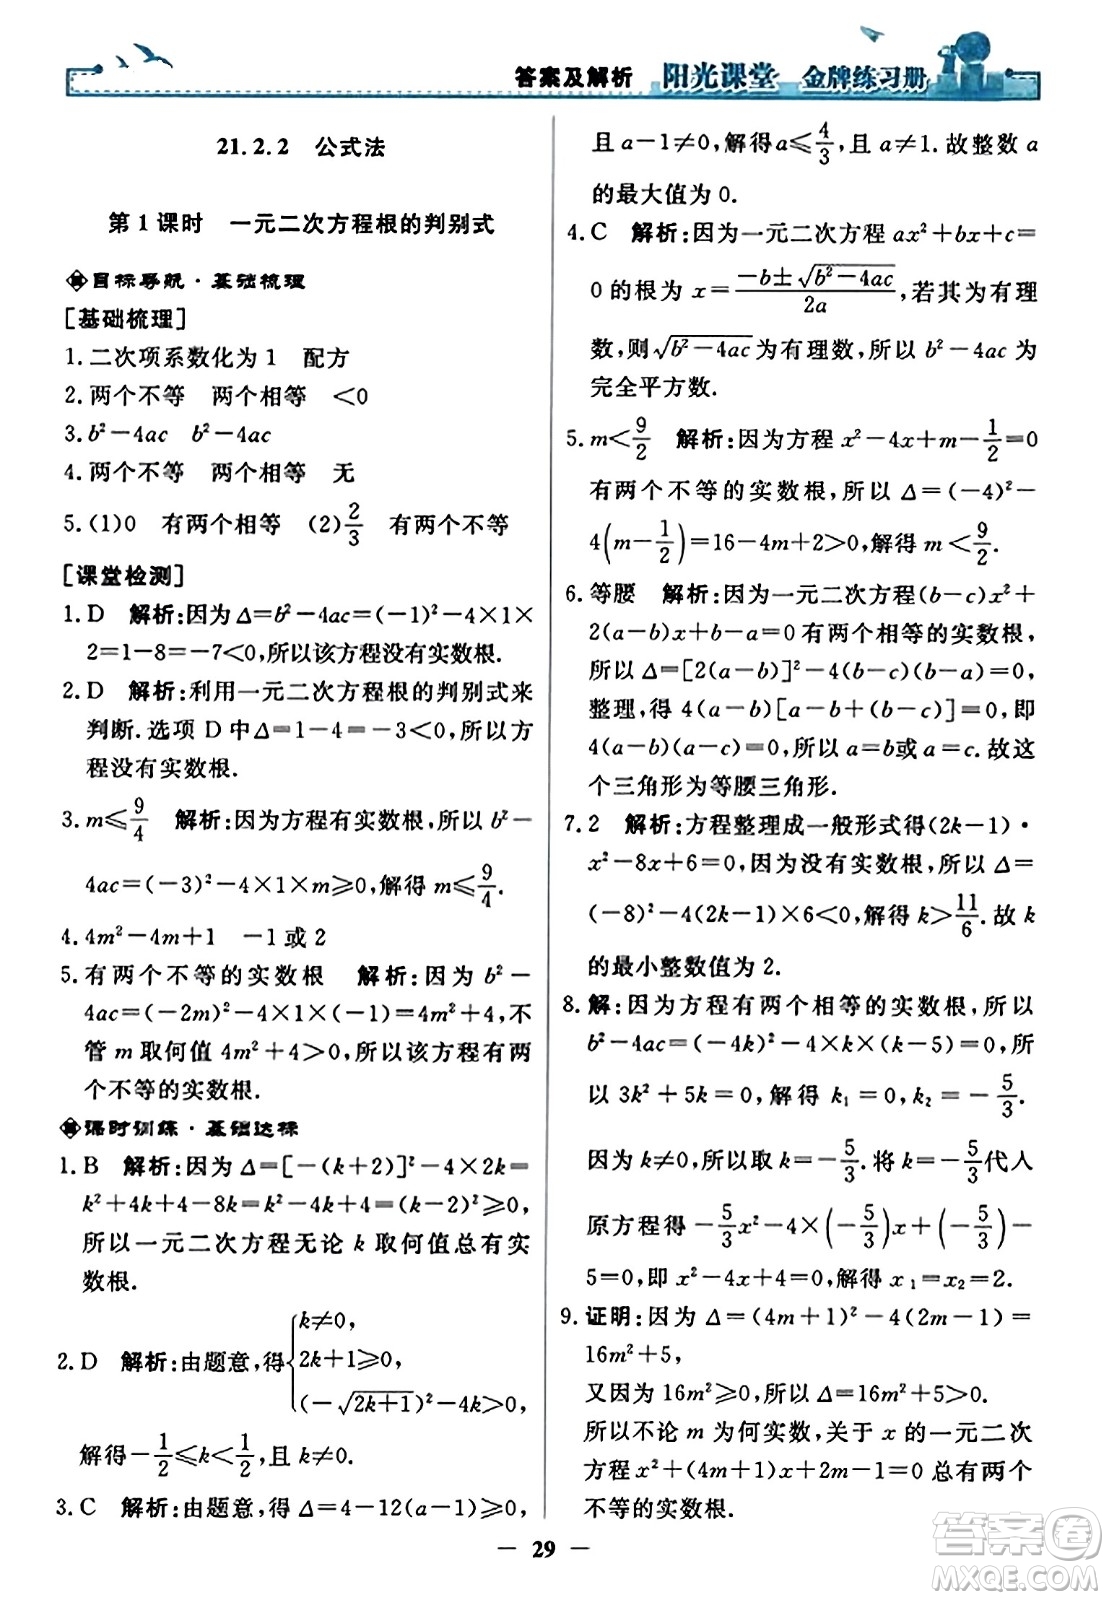 答案及解析 阳光课堂 金牌练习册
21.2.2 公式法
第1课时 一元二次方程根的判别式
目标导航·基础梳理
[基础梳理]
1.二次项系数化为1 配方
2.两个不等 两个相等 <0
3.b²-4ac b²-4ac
4.两个不等 两个相等 无
5.(1)0 有两个相等 (2)2/3 有两个不等
[课堂检测]
1.D 解析:因为Δ=b²-4ac=(-1)²-4×1×
2=1-8=-7<0,所以该方程没有实数根.
2.D 解析:利用一元二次方程根的判别式来
判断.选项D中Δ=1-4=-3<0,所以方
程没有实数根.
3.m≤9/4 解析:因为方程有实数根,所以b²-
4ac=(-3)²-4×1×m≥0,解得m≤9/4.
4.4m²-4m+1 -1或2
5.有两个不等的实数根 解析:因为b²-
4ac=(-2m)²-4×1×(-1)=4m²+4,不
管m取何值4m²+4>0,所以该方程有两
个不等的实数根.
课时训练·基础达标
1.B 解析:因为Δ=[-(k+2)]²-4×2k=
k²+4k+4-8k=k²-4k+4=(k-2)²≥0,
所以一元二次方程无论k取何值总有实
数根.
2.D 解析:由题意,得{k≠0,
2k+1≥0,
(-√(2k+1))²-4k>0,
解得-1/2≤k<1/2,且k≠0.
3.C 解析:由题意,得Δ=4-12(a-1)≥0,
且a-1≠0,解得a≤4/3,且a≠1.故整数a
的最大值为0.
4.C 解析:因为一元二次方程ax²+bx+c=
0的根为x=(-b±√(b²-4ac))/2a,若其为有理
数,则√(b²-4ac)为有理数,所以b²-4ac为
完全平方数.
5.m<9/2 解析:因为方程x²-4x+m-1/2=0
有两个不等的实数根,所以Δ=(-4)²-
4(m-1/2)=16-4m+2>0,解得m<9/2.
6.等腰 解析:因为一元二次方程(b-c)x²+
2(a-b)x+b-a=0有两个相等的实数根,
所以Δ=[2(a-b)]²-4(b-c)(b-a)=0,
整理,得4(a-b)[a-b+(b-c)]=0,即
4(a-b)(a-c)=0,所以a=b或a=c.故这
个三角形为等腰三角形.
7.2 解析:方程整理成一般形式得(2k-1)·
x²-8x+6=0,因为没有实数根,所以Δ=
(-8)²-4(2k-1)×6<0,解得k>11/6.故k
的最小整数值为2.
8.解:因为方程有两个相等的实数根,所以
b²-4ac=(-4k)²-4×k×(k-5)=0,所
以3k²+5k=0,解得k₁=0,k₂=-5/3.
因为k≠0,所以取k=-5/3.将k=-5/3代入
原方程得-5/3x²-4×(-5/3)x+(-5/3)-
5=0,即x²-4x+4=0,解得x₁=x₂=2.
9.证明:因为Δ=(4m+1)²-4(2m-1)=
16m²+5,
又因为16m²≥0,所以Δ=16m²+5>0.
所以不论m为何实数,关于x的一元二次
方程x²+(4m+1)x+2m-1=0总有两个
不等的实数根.
— 29 —
答案卷
MXQE.COM